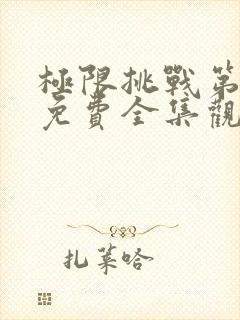 極限挑戰第
免費全集觀
扎萊哈